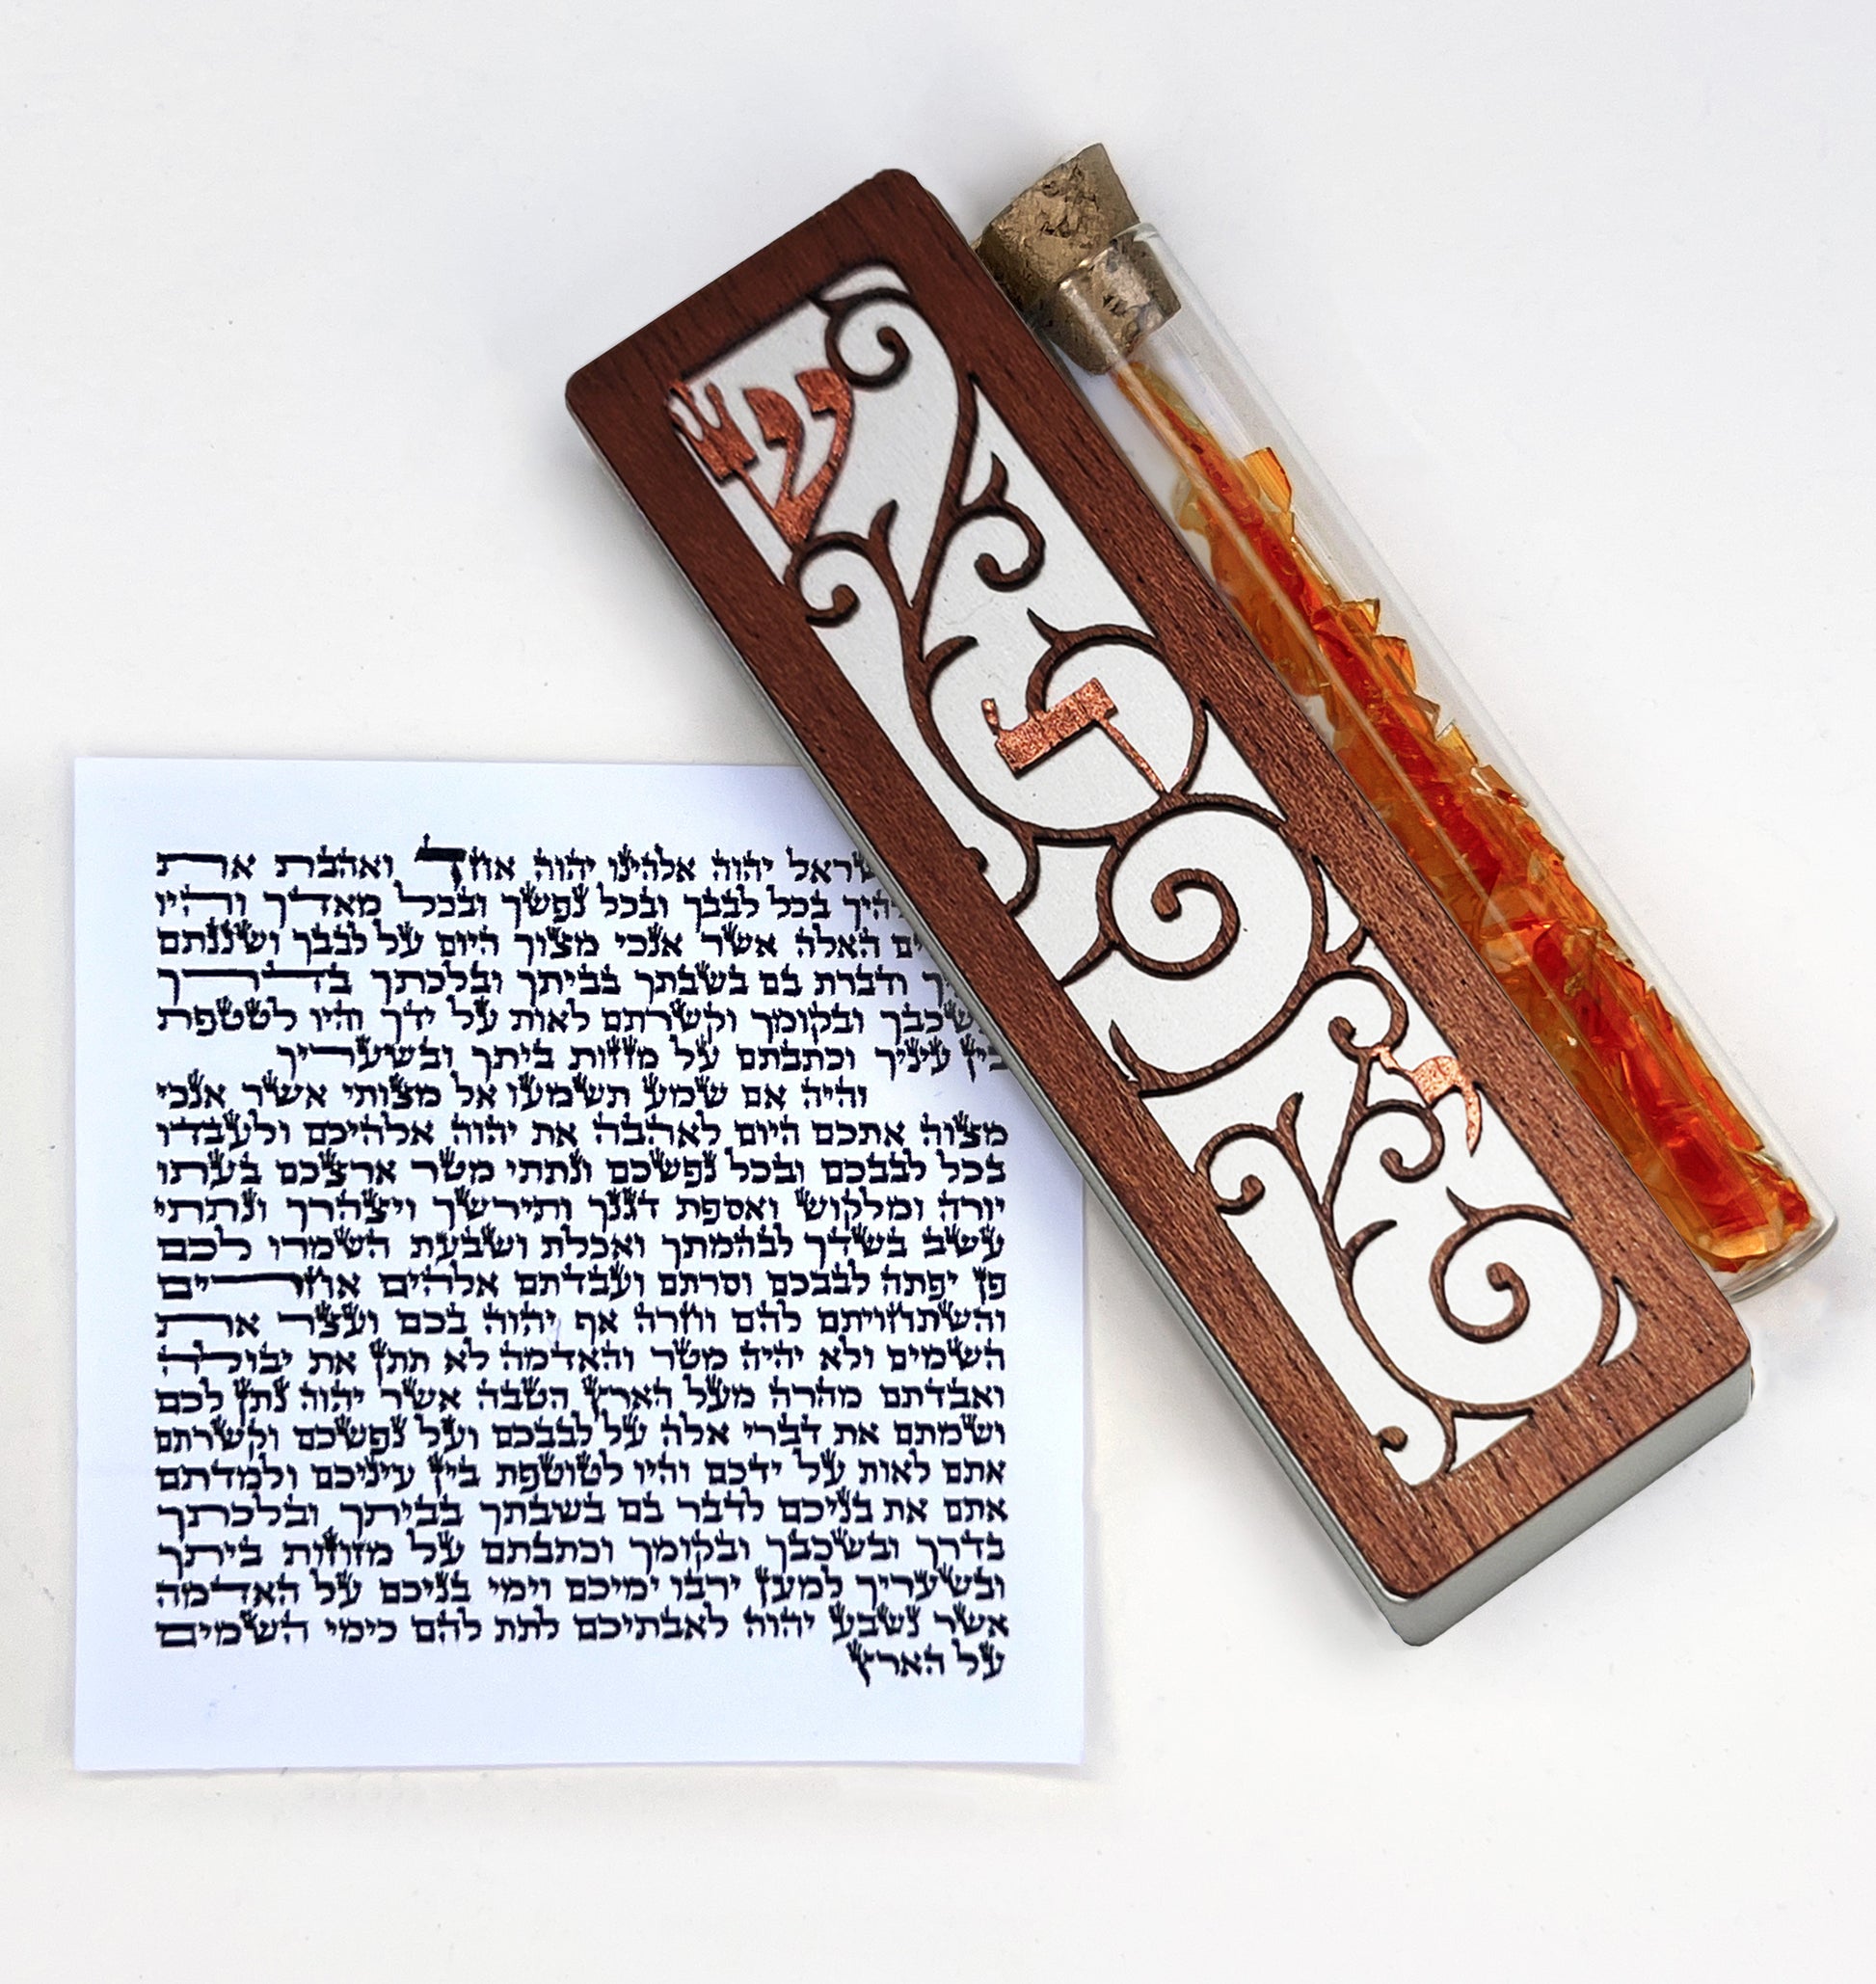 ש
ד
י
שראל יהוה אלהינו יהוה אחד ואהבת את
להיך בכל לבבך ובכל נפשך ובכל מאדך והיו
ים האלה אשר אנכי מצוך היום על לבבך ושננתם
יך ודברת בם בשבתך בביתך ובלכתך בדרך
שכבך ובקומך וקשרתם לאות על ידך והיו לטטפת
בין עיניך וכתבתם על מזזות ביתך ובשעריך
והיה אם שמע תשמעו אל מצותי אשר אנכי
מצוה אתכם היום לאהבה את יהוה אלהיכם ולעבדו
בכל לבבכם ובכל נפשכם ונתתי מטר ארצכם בעתו
יורה ומלקוש ואספת דגנך ותירשך ויצהרך ונתתי
עשב בשדך לבהמתך ואכלת ושבעת השמרו לכם
פן יפתה לבבכם וסרתם ועבדתם אלהים אחרים
והשתחויתם להם וחרה אף יהוה בכם ועצר את
השמים ולא יהיה מטר והאדמה לא תתן את יבולה
ואבדתם מהרה מעל הארץ הטבה אשר יהוה נתן לכם
ושמתם את דברי אלה על לבבכם ועל נפשכם וקשרתם
אתם לאות על ידכם והיו לטוטפת בין עיניכם ולמדתם
אתם את בניכם לדבר בם בשבתך בביתך ובלכתך
בדרך ובשכבך ובקומך וכתבתם על מזוזות ביתך
ובשעריך למען ירבו ימיכם וימי בניכם על האדמה
אשר נשבע יהוה לאבתיכם לתת להם כימי השמים
על הארץ